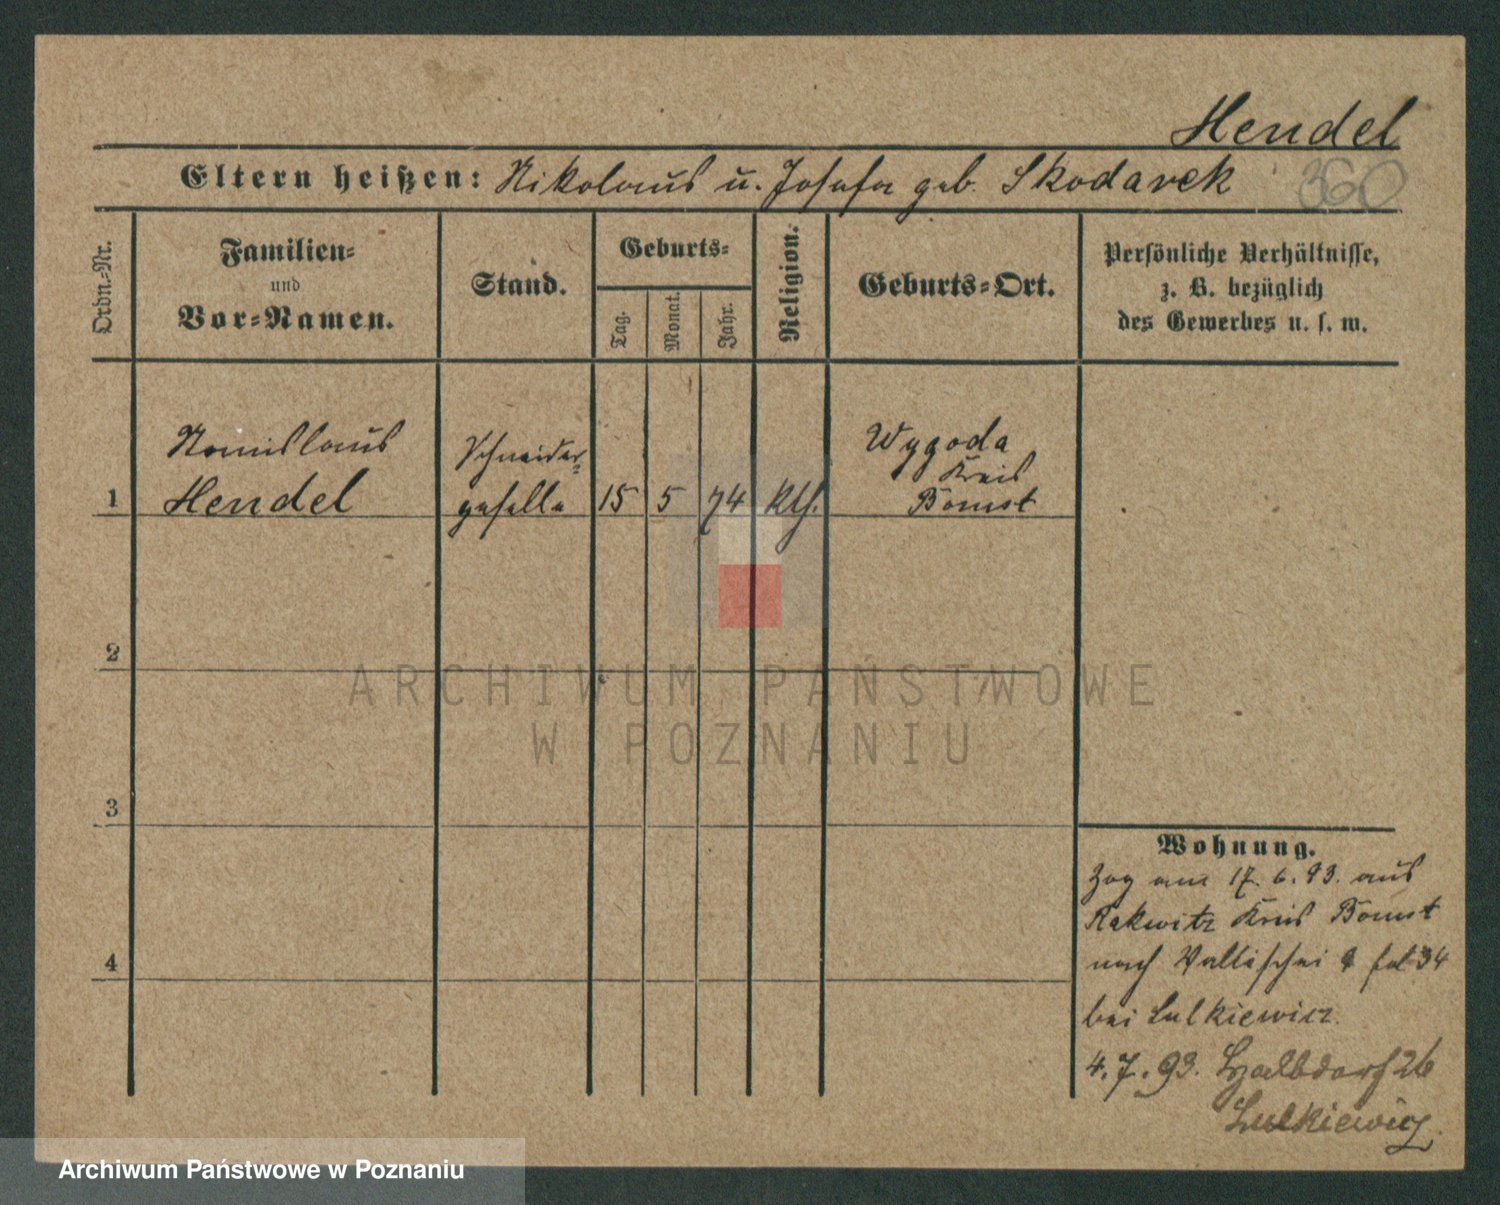 Hendel
Eltern heißen: Nikolaus u. Josefa geb. Skodarek
360
Ordn.-Nr.
Familien-
und
Vor-Namen.
Stand.
Geburts-
Tag.
Monat.
Jahr.
Religion.
Geburts-Ort.
Persönliche Verhältnisse,
z. B. bezüglich
des Gewerbes u. s. w.
1
Hendel
Schneider-
geselle
15
5
74
Kth.
Wygoda
Kreis
Bomst
2
3
4
Wohnung.
Zog am 17. 6. 93. aus
Rakwitz Kreis Bomst
nach Wallischei
bei Lulkiewicz.
4. 7. 93. Halbdorf 26
Lulkiewicz.
ARCHIWUM PAŃSTWOWE
W POZNANIU
Archiwum Państwowe w Poznaniu